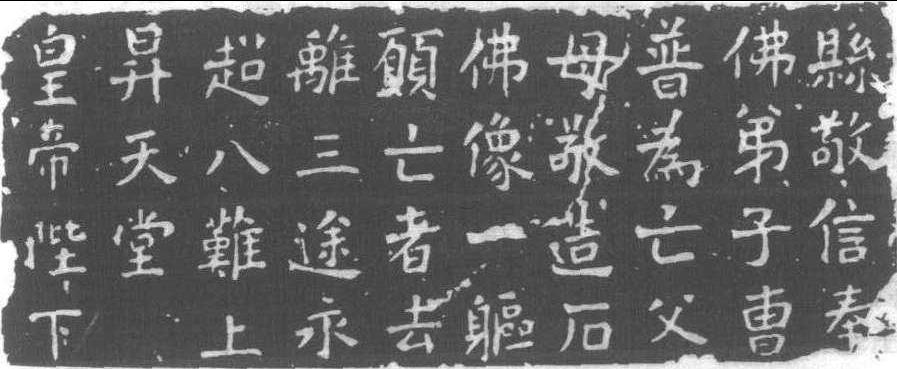 縣敬信奉
佛弟子曹
普為亡父
母敬造石
佛像一軀
願亡者去
離三途永
超八難上
昇天堂
皇帝陛下